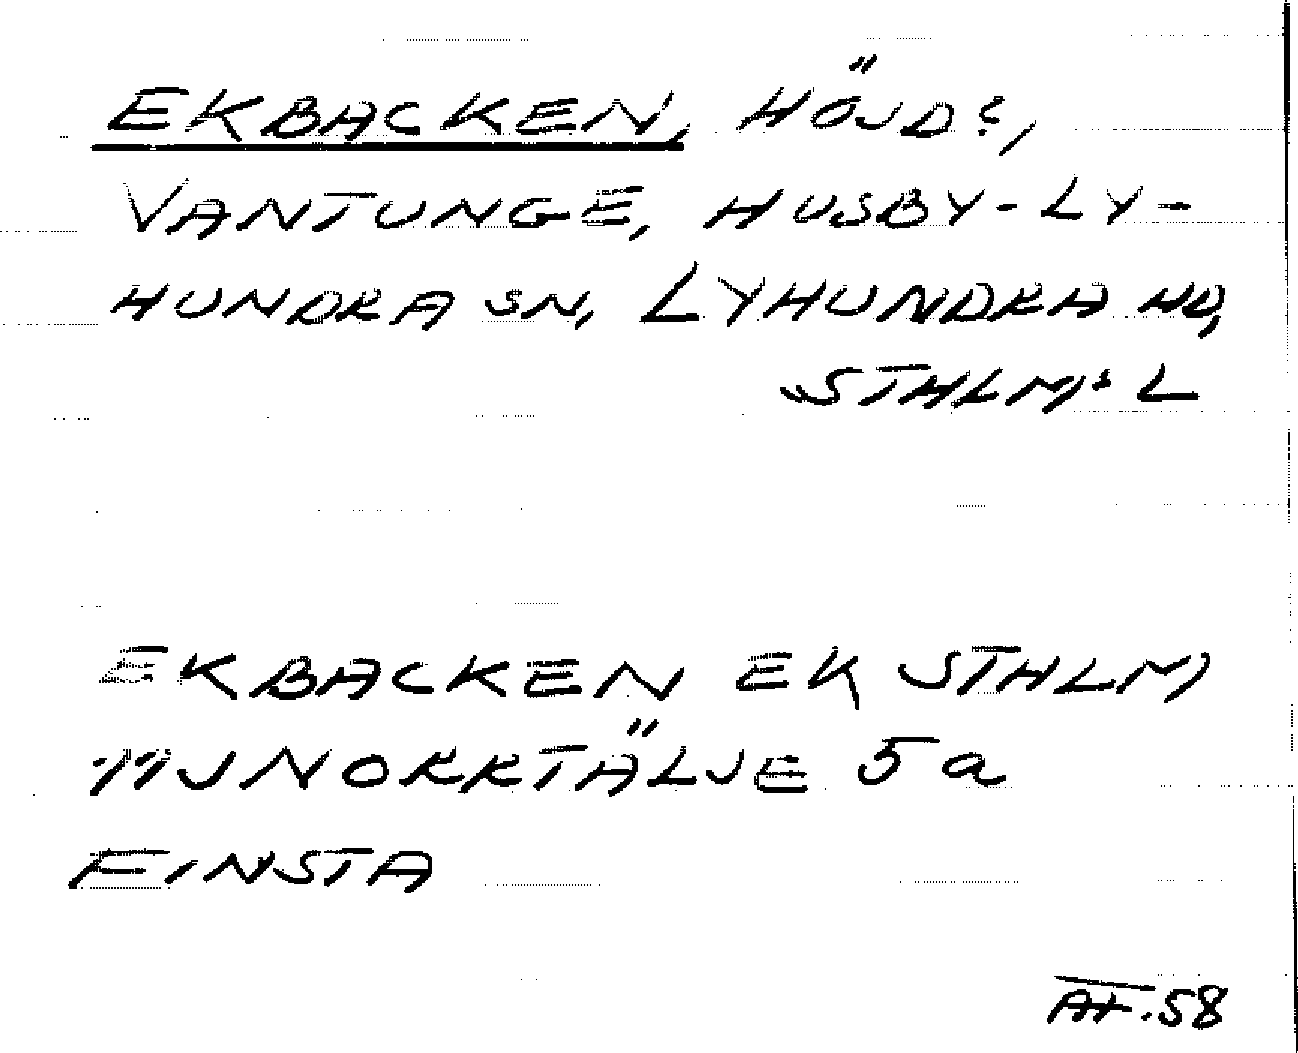 EKBACKEN, HÖJD?,
VANTUNGE, HUSBY-LY-
HUNDRA SN, LYHUNDRA HD,
STHLM:S L
EKBACKEN EK STHLM
11J NORRTÄLJE 5a
FINSTA
AF.58